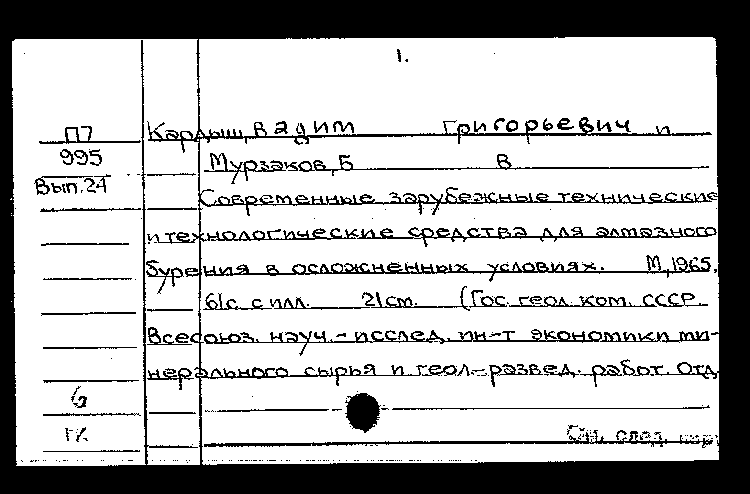 1.
П7 Кардыш, Вадим Григорьевич и
995 Мурзаков, Б В
Вып.24 Современные зарубежные технические
и технологические средства для алмазного
бурения в осложненных условиях. М, 1965.
61с. с илл. 21см. (Гос. геол. ком. СССР.
Всесоюз. науч.-исслед. ин-т экономики ми-
нерального сырья и геол.-развед. работ. Отд
6
См. след.